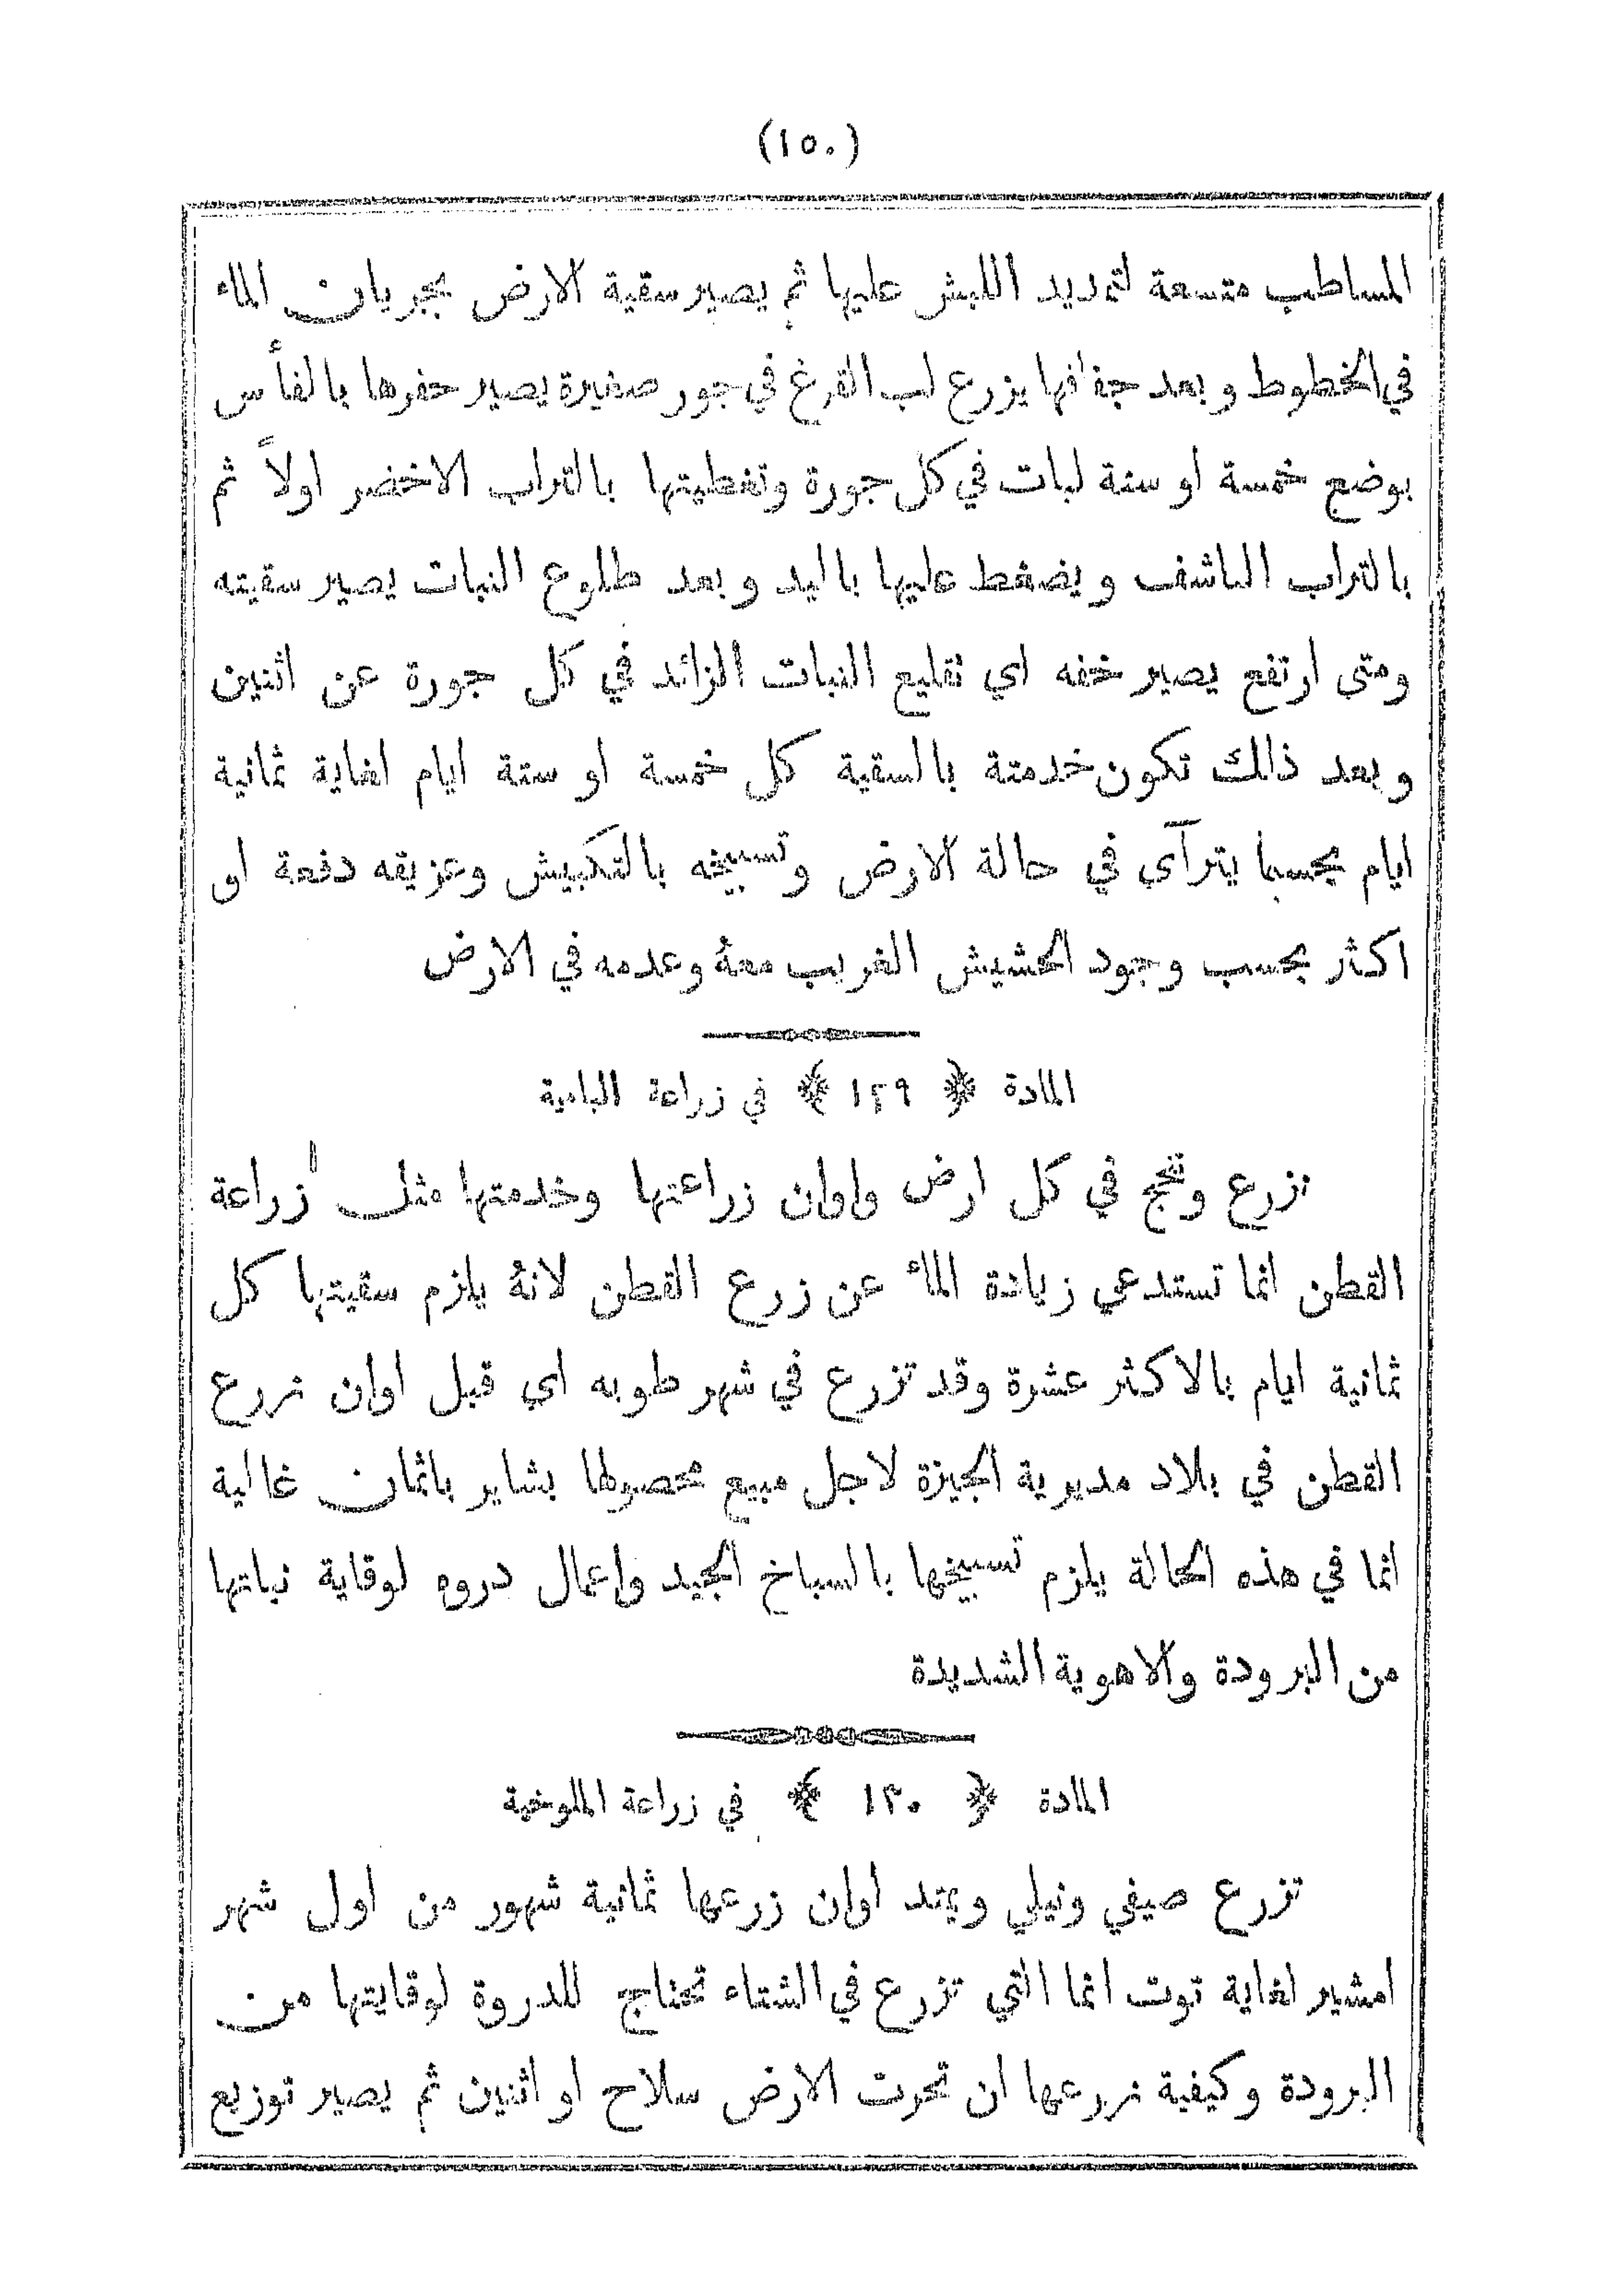 (١٥٠)
المساطب متسعة لتمديد اللبش عليها ثم يصير سقية الارض بجريان الماء
في الخطوط وبعد جفافها يزرع لب القرع في جور صغيرة يصير حفرها بالفأس
بوضع خمسة او ستة لبات في كل جورة وتغطيتها بالتراب الاخضر اولاً ثم
بالتراب الناشف ويضغط عليها باليد وبعد طلوع النبات يصير سقيته
ومتى ارتفع يصير خفه اي تقليع النبات الزائد في كل جورة عن اثنين
وبعد ذلك تكون خدمتة بالسقية كل خمسة او ستة ايام لغاية ثمانية
ايام بحسبما يترآى في حالة الارض وتسبيخه بالتكبيش وعزيقه دفعة او
اكثر بحسب وجود الحشيش الغريب معهُ وعدمه في الارض
المادة ﴿ ١٢٩ ﴾ في زراعة البامية
تزرع وتنجح في كل ارض واوان زراعتها وخدمتها مثل زراعة
القطن انما تستدعي زيادة الماء عن زرع القطن لانهُ يلزم سقيتها كل
ثمانية ايام بالاكثر عشرة وقد تزرع في شهر طوبه اي قبل اوان زرع
القطن في بلاد مديرية الجيزة لاجل مبيع محصولها بشاير باثمان غالية
انما في هذه الحالة يلزم تسبيخها بالسباخ الجيد واعمال دروه لوقاية نباتها
من البرودة والاهوية الشديدة
المادة ﴿ ١٣٠ ﴾ في زراعة الملوخية
تزرع صيفي ونيلي ويمتد اوان زرعها ثمانية شهور من اول شهر
امشير لغاية توت انما التي تزرع في الشتاء تحتاج للدروة لوقايتها من
البرودة وكيفية زرعها ان تحرت الارض سلاح او اثنين ثم يصير توزيع